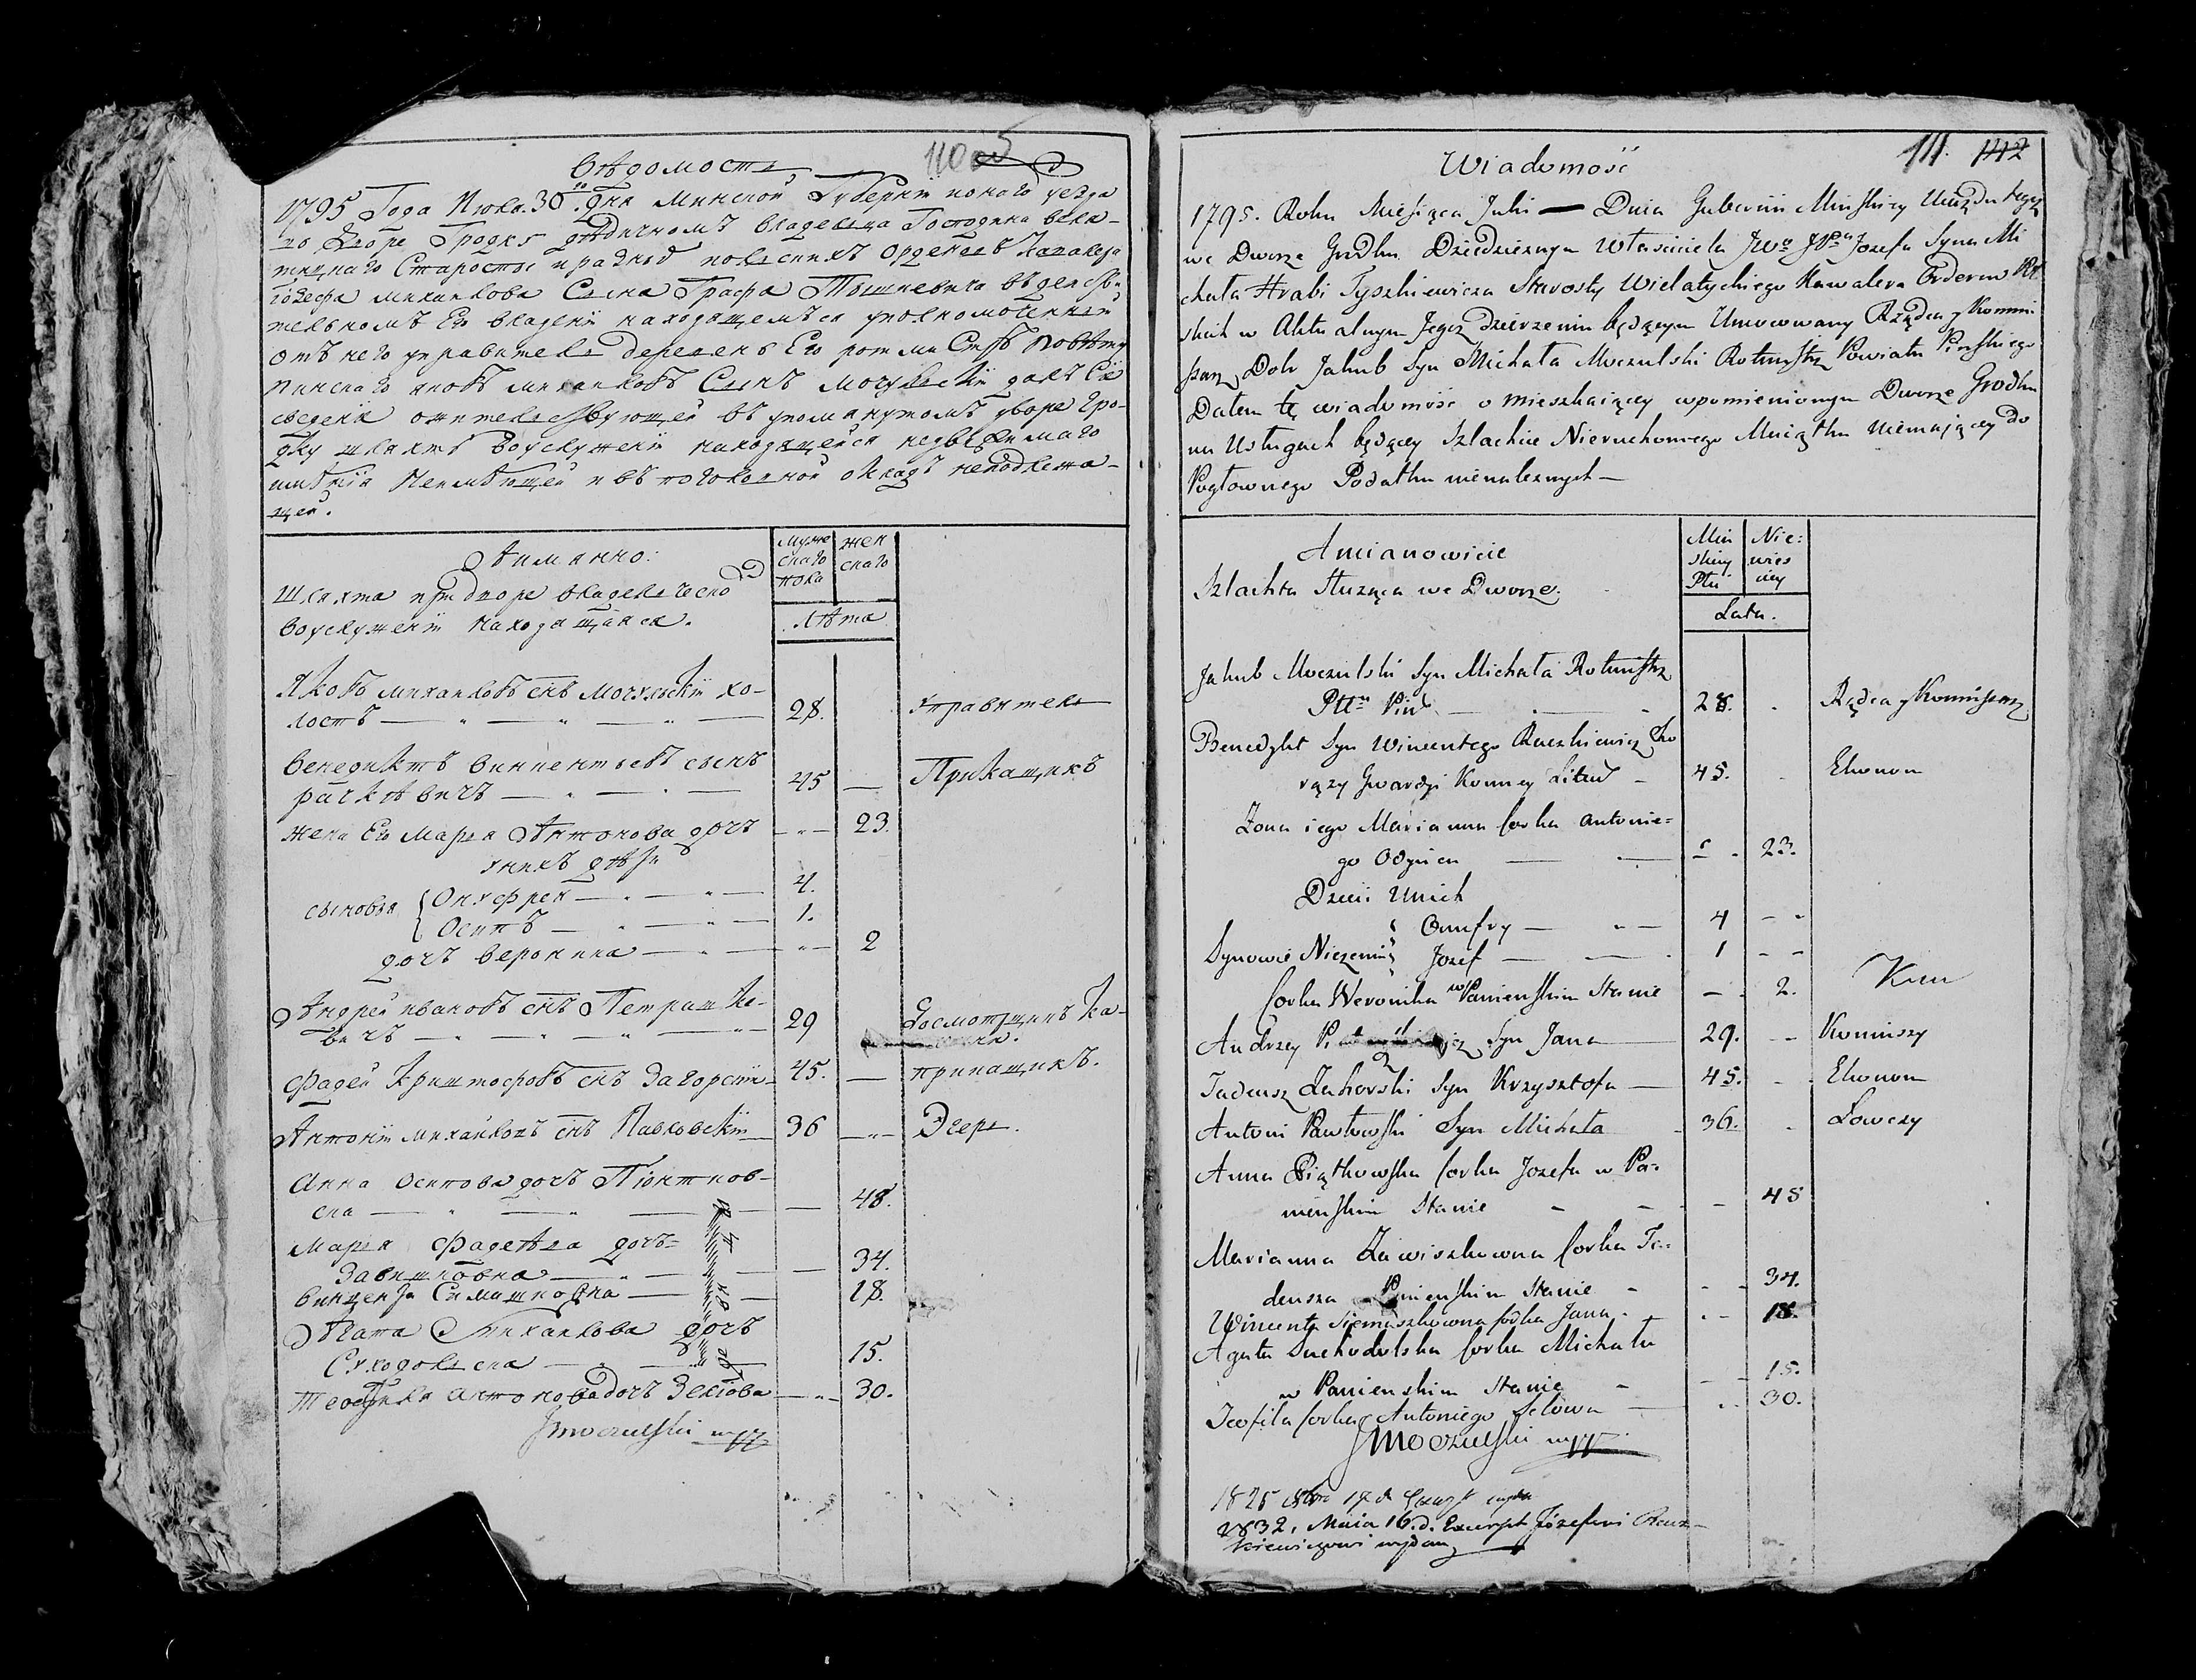 Вѣдомость
110
1795 Года Июля 30го дня Минской Губернїи
во Дворе Городку дѣдичномъ владельца Господина
Старосты и разныхъ польскихъ Орденовъ Кавалера
Иозефа михаилова Сына Графа Тышкевича въ действи-
тельномъ Его владенїи находящемъся уполномоченный
отъ него управитель деревень Его ротмистръ Повѣту
пинскаго яковъ михаиловъ Сынъ мочульскїй далъ Сїе
сведенїе о жительствующей въ упомянутомъ дворе Горо-
дку шляхтѣ во услуженїи находящейся недвижимаго
имѣнїя Неимѣющей и въ поголовной окладъ неподлежа-
щей.
А имянно:
муже
скаго
пола
жен
скаго
Шляхта при дворе владельческо
во услуженїи находящаяся.
лѣта
Яковъ михаиловъ снъ мочульскїй хо-
лостъ — 28. Управитель
Венедиктъ винцентьевъ сынъ
рачкѣвичъ — 45 — Прикащикъ
жена Его Марья Антонова дочъ — 23.
у нихъ дѣти
сыновья { Онуфрей — 4.
Осипъ — 1.
дочъ вероника — 2
Андрей ивановъ снъ Петрашке-
вичъ — 29
Фадей Криштофовъ снъ Загорскїй 45. — прикащикъ.
Антонїй михайловъ снъ Павловскїй 36 — Эгерь.
Анна осипова дочъ Пїонтков-
ска — 48.
Марья Фадеева дочъ
Завишковна — 34.
винцента Симашковна — 18.
Агата Михаилова дочъ
Суходольска — 15.
Теофиля антонова дочъ Зелїова — 30.
JMoczulski mpp
111. 112
Wiadomość
1795. Roku Miesiąca Juli — Dnia Gubernii Minskiey Ujazdu tegoż
we Dworze Grodku Dziedzicznym Własciciela JWo JPa Jozefa Syna Mi
chała Hrabi Tyszkiewicza Starosty Wielatyckiego Kawalera Orderow Pol
skich w Aktualnym Jego dzierzeniu będącym Umocowany Rządca y Kommi
sarz Dobr Jakub Syn Michała Moczulski Rotmistrz Powiatu Pinskiego
Dałem tę wiadomość o Mieszkaiącey wpomienionym Dworze Grodku
na Usługach będącey Szlachcie Nieruchomego Maiątku niemaiącey do
Pogłownego Podatku nienależnych —
Amianowicie
Szlachta Służąca we Dworze.
Męz
skiey
Płci
Nie:
wies
ciey
Lata.
Jakub Moczulski Syn Michała Rotmistrz
Pttu Pin — 28. Rządca y Komisarz
Benedykt Syn Wincentego Raczkiewicz Cho
rąży Gwardyi Konney Litew — 45. Ekonom
Zona iego Marianna Corka Antonie=
go Odynca — 23.
Dzieci Unich
Onufry — 4
Synowie Nieżenni Jozef — 1
Corka Weronika w Panienskim Stanie — 2.
Andrzey Syn Jana 29. — Koniuszy
Tadeusz Zahorski Syn Krzysztofa — 45. Ekonom
Antoni Pawłowski Syn Michała 36. Łowczy
Anna Piątkowska Corka Jozefa w Pa-
nienskim Stanie — 48
Marianna Zawiszkowna Corka Ta-
deusza Panienskim Stanie — 34.
Wincenta Siemaszkowna Corka Jana — 18.
Agata Suchodolska Corka Michała
w Panienskim Stanie — 15.
Teofila Corka Antoniego Selowa — 30.
JMoczulski mpp
1832, Maia 16. d. Excerpt Józefowi Racz-
kiewiczowi wydany